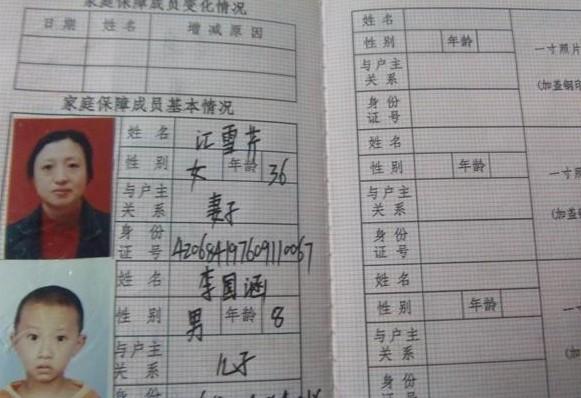 家庭保障成员变化情况
日期 姓名 增减原因
家庭保障成员基本情况
姓名 江雪芹
性别 女 年龄 36
与户主关系 妻子
身份证号 420684197609110067
姓名 李国涵
性别 男 年龄 8
与户主关系 儿子
身份
姓名
性别 年龄 一寸照片
与户主关系 (加盖钢印
身份证号
姓名
性别 年龄 一寸照
与户主关系 (加盖
身份证号
姓名
性别 年龄 一寸
与户主关系 (加
身份证号